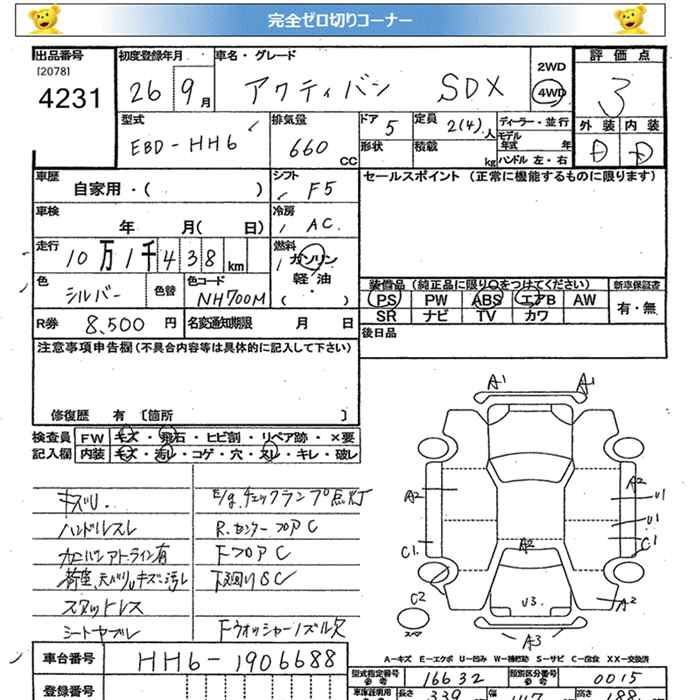 完全ゼロ切りコーナー
出品番号 初度登録年月 車名・グレード 評価点
[2078]
4231 26 9月 アクティバン SDX 2WD 4WD 3
型式 EBD-HH6 排気量 660 CC ドア 5 定員 2(4)人 ディーラー・並行
形状 積載 kg モデル年式 年 ハンドル 左・右 外装 D 内装 D
車歴 自家用・( ) シフト F5 セールスポイント (正常に機能するものに限ります)
車検 年 月( 日) 冷房 AC
走行 10万1千438km 燃料 ガソリン 軽油 ・ ( )
色 シルバー 色替 色コード NH700M
装備品 (純正品に限り○をつけてください) 新車保証書
PS PW ABS エアB AW 有・無
SR ナビ TV カワ
R券 8,500 円 名変通知期限 月 日 後日品
注意事項申告欄 (不具合内容等は具体的に記入して下さい)
修復歴 有 〔箇所 〕
検査員 FW キズ・飛石・ヒビ割・リペア跡・×要
記入欄 内装 キズ・汚レ・コゲ・穴・スレ・キレ・破レ
キズU. E/g.チェックランプ点灯
ハンドルスレ R.センターフロアC
FフロアC
荷室、天バリUキズ・汚レ 下廻りSC
スタットレス
シートヤブレ Fウォッシャーノズル欠
A1 A1
A2 A2 U1
U1
C1 A2 C1
C2 U3 A2
スペア
A3
A-キズ E-エクボ U-凹み W-補修跡 S-サビ C-腐食 XX-交換済
車台番号 HH6-1906688
型式指定番号 参考 16632 類別区分番号 参考 0015
登録番号 車庫証明用 長さ 339 幅 147 高さ 188